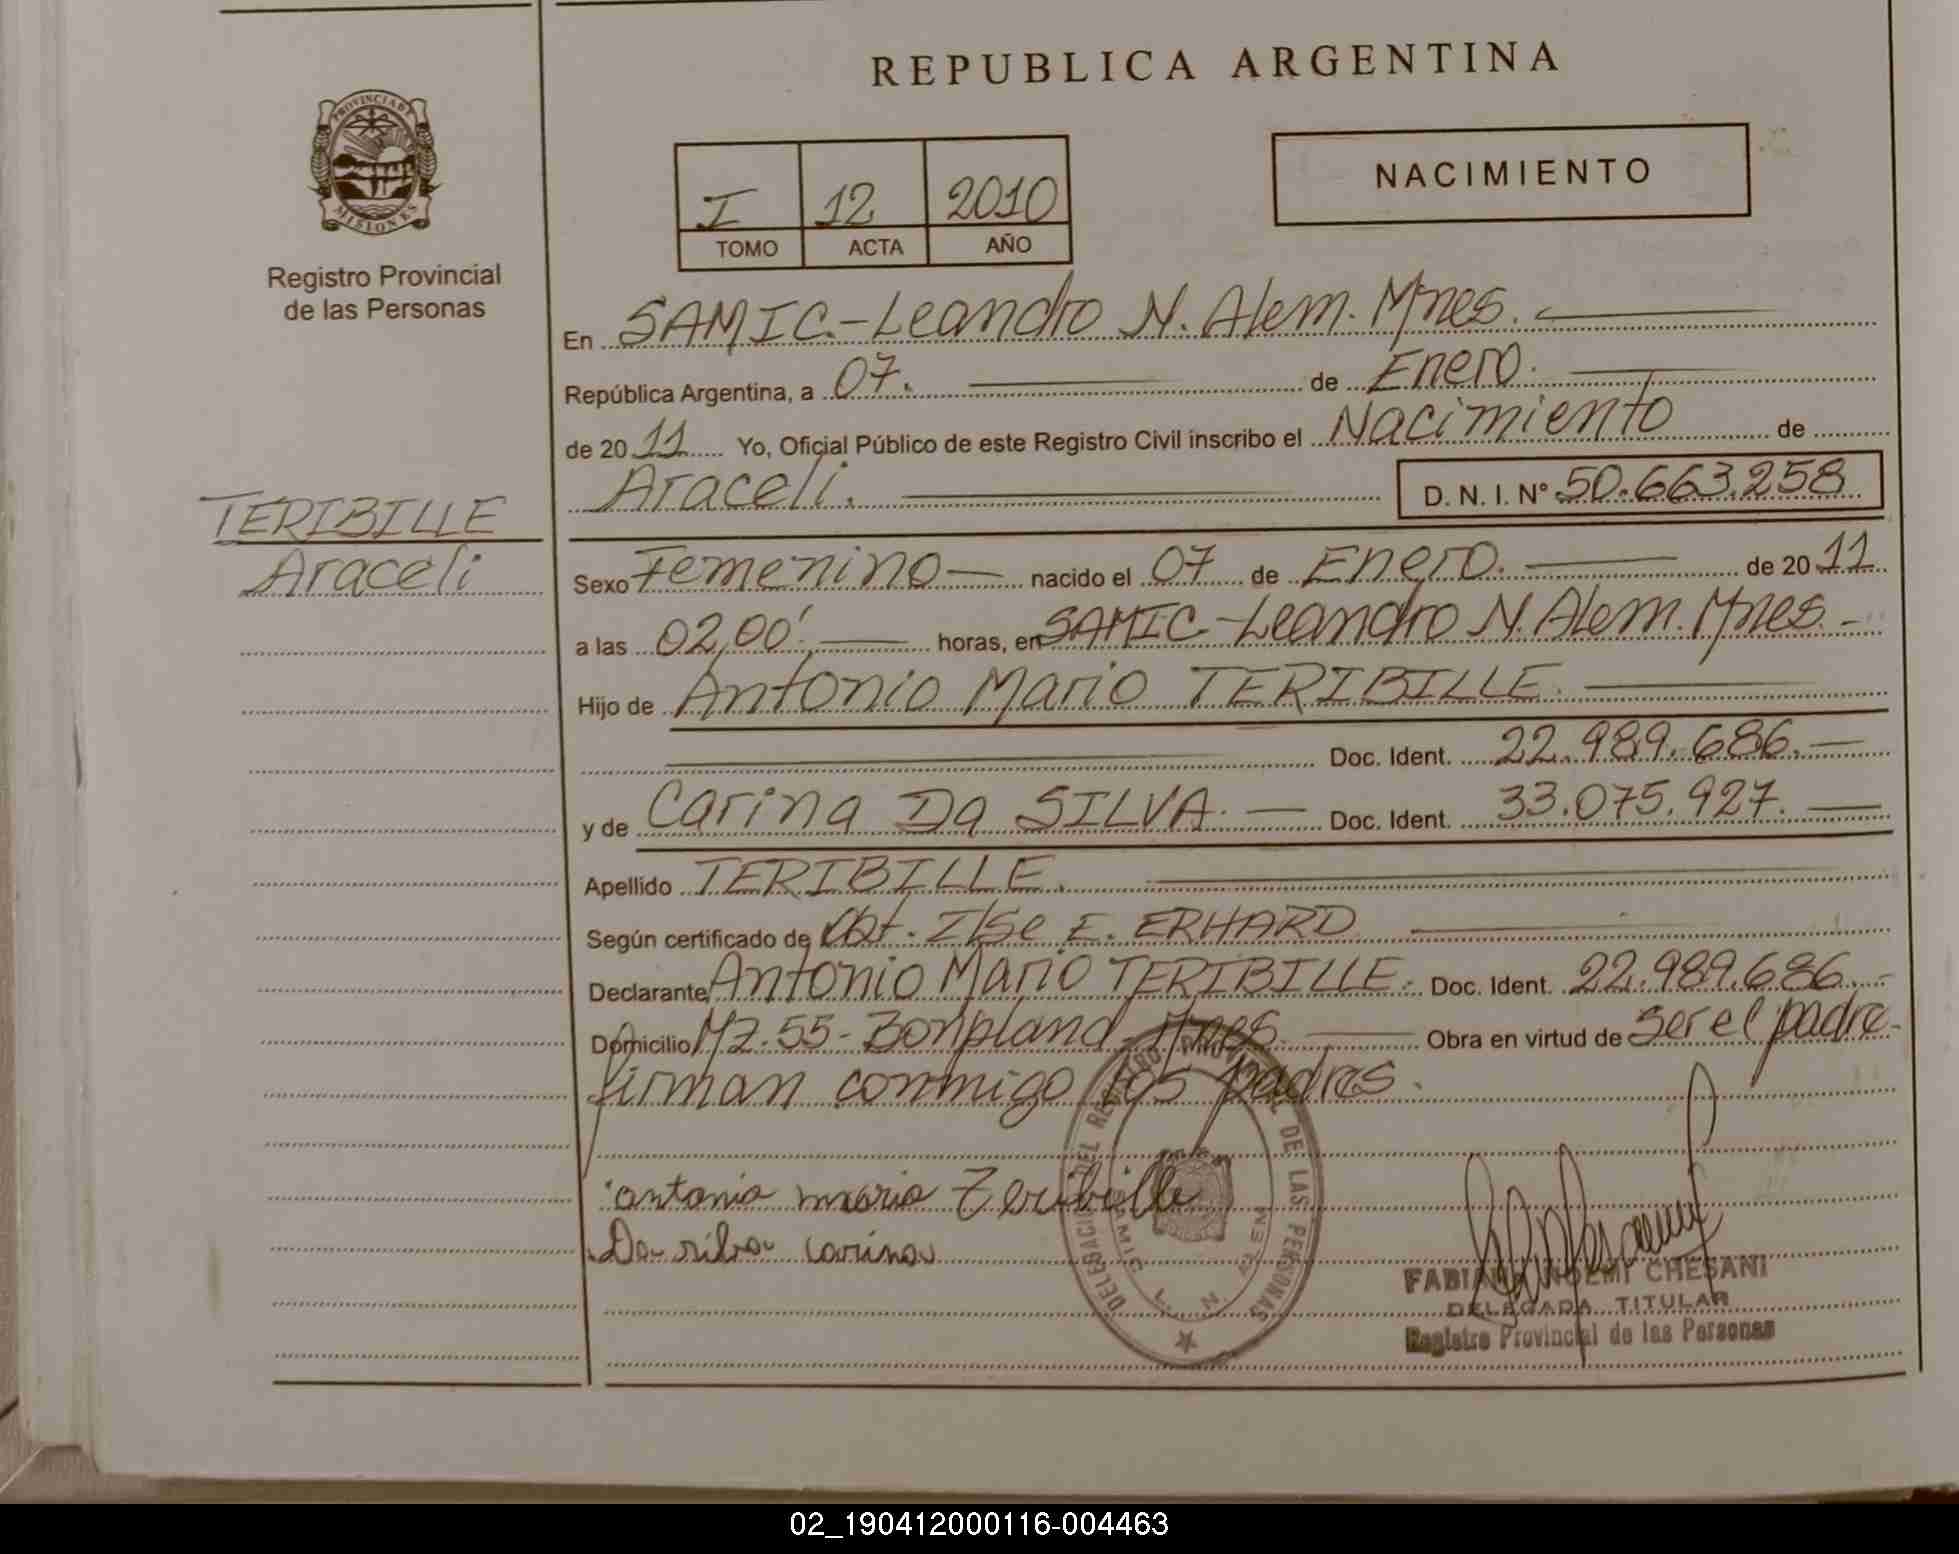 REPUBLICA ARGENTINA
PROVINCIA DE
MISIONES
Registro Provincial
de las Personas
I 12 2010
TOMO ACTA AÑO
NACIMIENTO
En SAMIC-Leandro N. Alem. Mnes.
República Argentina, a 07. de Enero.
de 2011 Yo, Oficial Público de este Registro Civil inscribo el Nacimiento de
Araceli. D. N. I. Nº 50.663.258
TERIBILLE
Araceli
Sexo Femenino nacido el 07 de Enero. de 2011
a las 02,00'. horas, en SAMIC-Leandro N. Alem. Mnes.-
Hijo de Antonio Mario TERIBILLE.
Doc. Ident. 22.989.686.
y de Carina Da SILVA. Doc. Ident. 33.075.927.
Apellido TERIBILLE.
Según certificado de Obt. Ilse E. ERHARD
Declarante Antonio Mario TERIBILLE. Doc. Ident. 22.989.686.-
Domicilio Mz. 55-Bonpland-Mnes. Obra en virtud de ser el padre-
firman conmigo los padres.
antonio mario Teribille
Da silva Carina
DELEGACION DEL REGISTRO PROVINCIAL DE LAS PERSONAS
SAMIC L. N. ALEM
FABIANA NOEMI CHESANI
DELEGADA TITULAR
Registro Provincial de las Personas
02_190412000116-004463